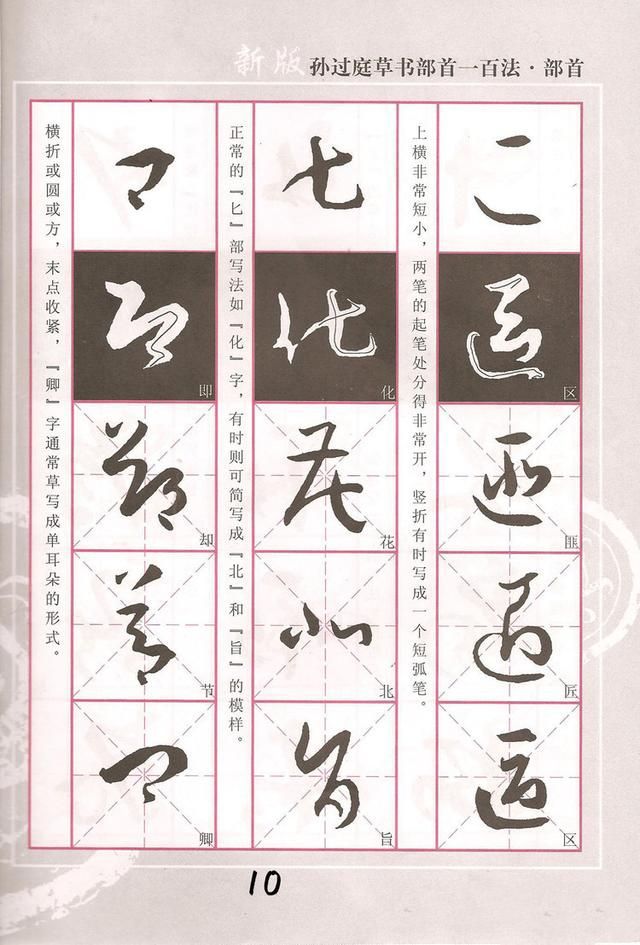 新版 孙过庭草书部首一百法·部首
上横非常短小，两笔的起笔处分得非常开，竖折有时写成一个短弧笔。
区
匪
匠
区
正常的『匕』部写法如『化』字，有时则可简写成『北』和『旨』的模样。
化
花
北
旨
横折或圆或方，末点收紧，『卿』字通常草写成单耳朵的形式。
即
却
节
卿
10